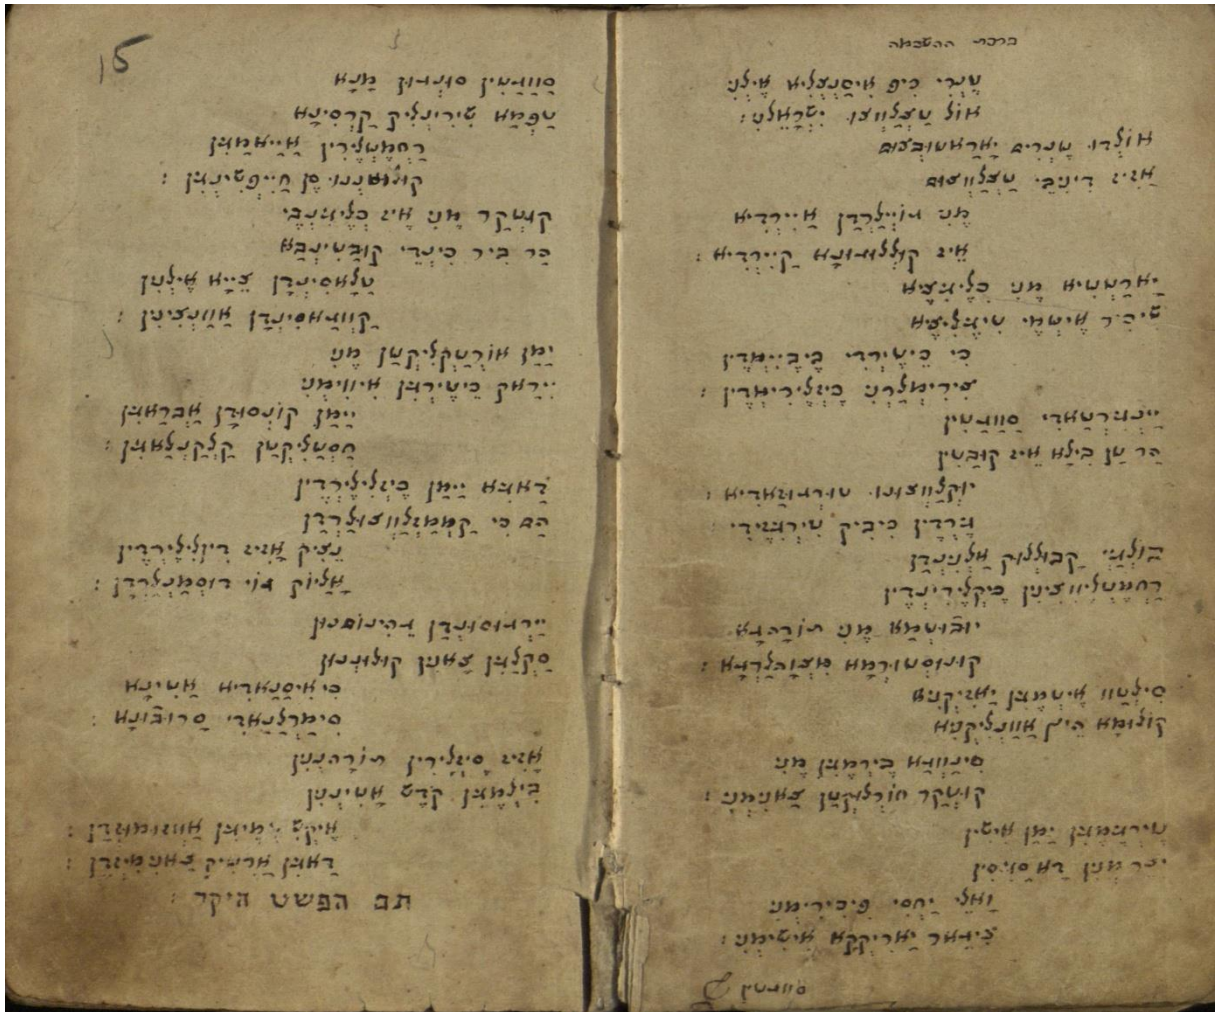 ברכת ההשכמה
טֶנְרִי כִיפ אִיסַנְצְלִיא אֵילְנִי
אוֹל טַצַלְווּצו יִשְׂרָאֵלְנִי :
אוֹלְדוּ טֶנְרִים יָארַאטוּבְצוּם
אַזִיז דִינִבֵי טַצַלְווּצוּם
מֶנִי גוֹיְלַרְדַן אַיִירְדִיא
אֵיז קוּלְלוּגוּנָא קַיִירְדִיא :
יִארַטְטִיא מֶנִי כְלֵיגִצֵיא
שִׁיכִיר אֵיטְמֵי טִיגֵלִיצֵיא
כִי כֵיטֶירְדִי בֶיבֵיְימְדֵין
צִירִימְלַרְנִי כֶיזְלֵירִימְדֵין :
יַינְגִרְטַאדִי סַוַוגַטִין
הַר טַן בִילָא אֵיז קוּבַטִין
יוּקְלַוְוצוּנוּ טוּרְגוּזַאדִיא :
גֵרְדֵין כִיבִיק טִירְגִיזִידִי
בּוֹלְגַיְ קַבוּלְלוּק אַלְנִינְדַן
רַחְמֶטְלִיוִוצִינִין כֵיקְלֵירִינְדֵין
יוּבוּטְמַא מֶנִי תּוֹרָהגָא
קוּנוּסְטוּרְמָא מִצְוָהלַרְגָא :
סִילְטַוו אֵיטְמֵגִן יַאזִיקְנִיא
קוֹלוּמָא הֵיץ אַוַונְלִיקְנִיא
סִינַווְגָא בֶירְמֵגִן מֶנִי
קוּטְקַר חוֹרְלוּקְטַן צַאנִימְנִי :
טִירְגֵמֵגִן יַמַן אִישִׁין
יֵצֵר מֵנִין דַאסַוִיסִין
וַאלֵי יַחְסִי פִיכִירִימְנִי
צִיגַאר יַארִיקְקַא אִישִׁימְנִי :
סווגטין
15
סַוַוגַטִין סוּנְגוּן מַנָא
טַפְּמַא שִׁירִינְלִיק קַרְסִינָא
רַחְמֶטְלֵירִין אַיַיאמַגִן
קוּלוּטְנְנוּ סֶן חַיִיפְּסִינְגִן :
קוּטְקַר מֶנִי אֵיז כֶלֵיגִנְבֵי
הַר בִיר כִינְדֵי קוּבַטִינְבַא
טַלָאסִינְדַן צֵיְיא אֵילְנִין
קַוְוגַאסִינְדַן אַוַונְצִינִין :
יַמַן אוֹרְטַקְלִיקְטַן מֶנִי
יִירַאק כֵיטֶירְגִן אִיוִוימְנִי
יַיְמַן קוֹנְסוּדַן אַבְרַאגִן
חַסְטַלִיקְטַן קַלְקַנְלַאגִן :
דַאגִא יַימַן כֶיזְלֵילֵירְדֵין
הַם כִי קַמְמַזְלַוְוצוּלַרְדַן
נֵצִיק אַזִיז דִינְלִילֵירְדֵין
אַלֵיוֹק גוֹי דוּסְמַנְלַרְדַן :
יַיְרְגוּסוּנְדַן גֵהִינוֹםנוּן
סַקְלַגִן צַאנִין קוּלוּנְנוּן
כִי אִיסַנַאדִיא אַטִינָא
סִימַרְלַנַאדִי סַרוּבוּנָא :
אַזִיז סֵיזְלֵירִין תּוֹרָהנִנִין
בִילְמֵגִן קדֶשׁ אַטִינְנִין
אֵיקְשׁ יֵמֵיגִן אַוְוזוּמוּזְדַן :
דַאגִן אַרְטִיק צַאנִמִיזְדַן :
תם הפשט היקר :